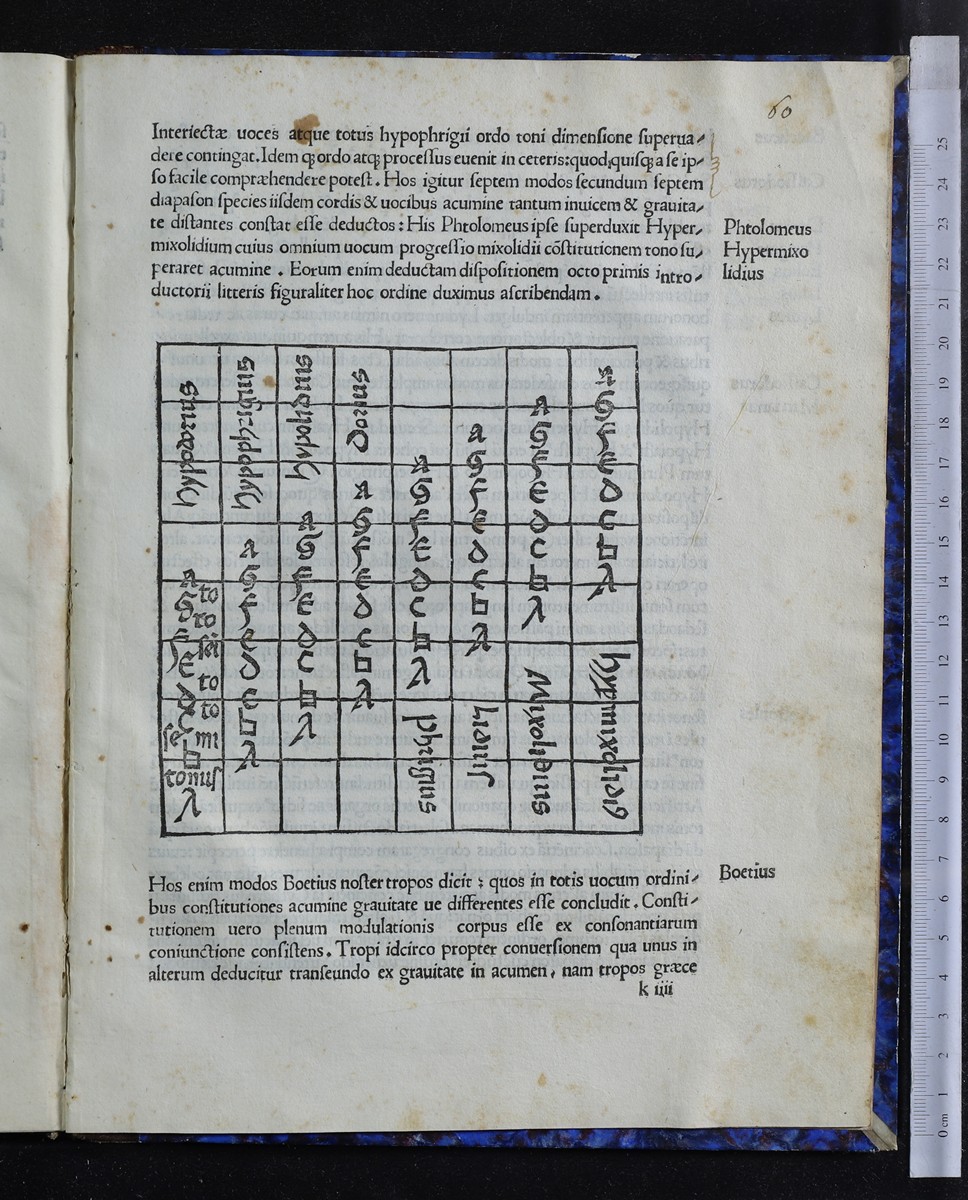 60
Interiectæ uoces atque totus hypophrigii ordo toni dimenſione ſuperua⸗
dere contingat. Idem qꝫ ordo atqꝫ proceſſus euenit in ceteris: quod, quiſqꝫ a ſe ip⸗
ſo facile compræhendere poteſt. Hos igitur ſeptem modos ſecundum ſeptem
diapaſon ſpecies iiſdem cordis & uocibus acumine tantum inuicem & grauita⸗
te diſtantes conſtat eſſe deductos: His Phtolomeus ipſe ſuperduxit Hyper⸗
mixolidium cuius omnium uocum progreſſio mixolidii cõſtitutionem tono ſu⸗
peraret acumine. Eorum enim deductam diſpoſitionem octo primis intro⸗
ductorii litteris figuraliter hoc ordine duximus aſcribendam.
Phtolomeus
Hypermixo
lidius
Hypodorius
A
G
F
E
D
C
♮
A
to
to
ſei
to
to
ſe mi
tonuſ
A
G
F
E
D
C
♮
A
Hypolidius
A
G
F
E
D
C
♮
A
Dorius
A
G
F
E
D
C
♮
A
A
G
F
E
D
C
♮
A
Phrigius
A
G
F
E
D
C
♮
A
Lidiuſ
A
G
F
E
D
C
♮
A
Mixolidius
A
G
F
E
D
C
♮
A
Hos enim modos Boetius noſter tropos dicit: quos in totis uocum ordini⸗
bus conſtitutiones acumine grauitate ue differentes eſſe concludit. Conſti⸗
tutionem uero plenum modulationis corpus eſſe ex conſonantiarum
coniunctione conſiſtens. Tropi idcirco propter conuerſionem qua unus in
alterum deducitur tranſeundo ex grauitate in acumen, nam tropos græce
k iiii
Boetius